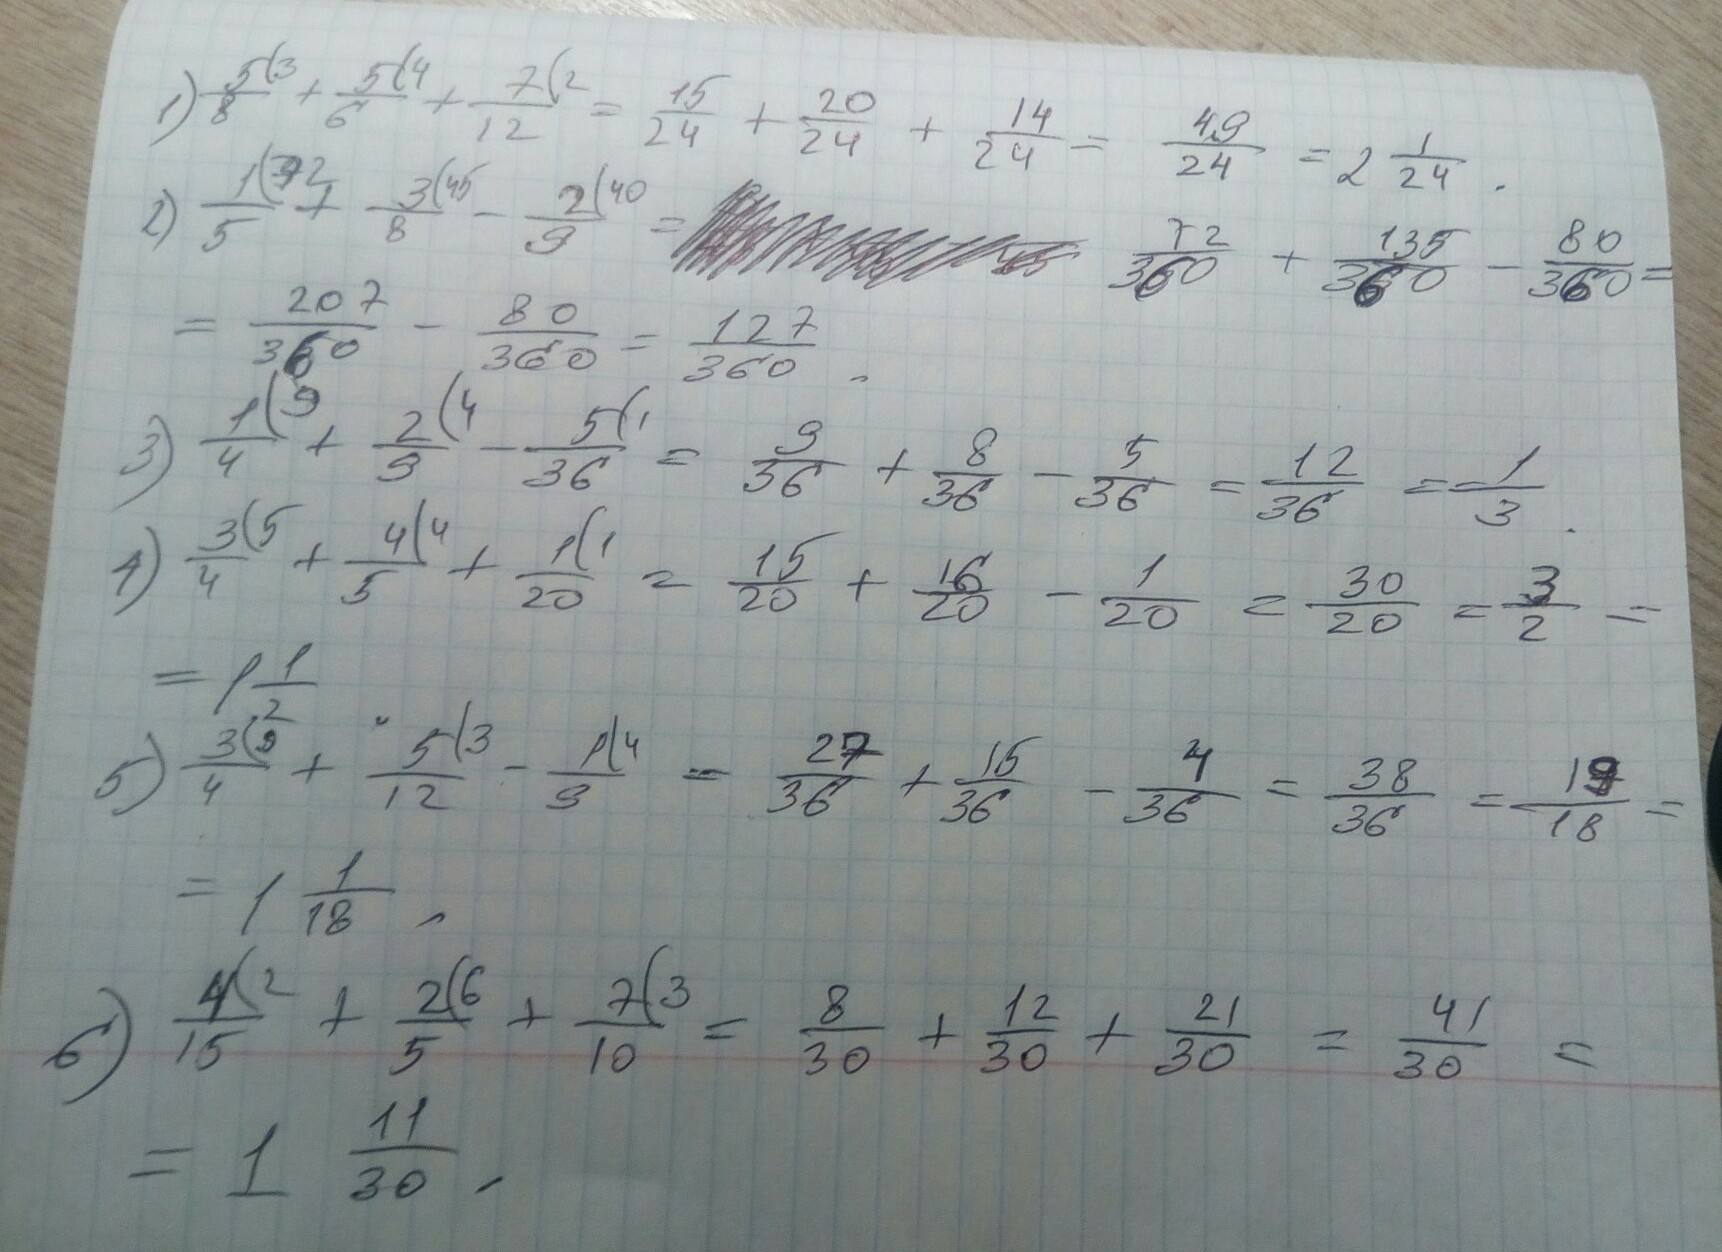 1) 5(3/8 + 5(4/6 + 7(2/12 = 15/24 + 20/24 + 14/24 = 49/24 = 2 1/24 .
2) 1(72/5 + 3(45/8 - 2(40/9 = 72/360 + 135/360 - 80/360 =
= 207/360 - 80/360 = 127/360 .
3) 1(9/4 + 2(4/9 - 5(1/36 = 9/36 + 8/36 - 5/36 = 12/36 = 1/3 .
4) 3(5/4 + 4(4/5 + 1(1/20 = 15/20 + 16/20 - 1/20 = 30/20 = 3/2 =
= 1 1/2
5) 3(9/4 + 5(3/12 - 1(4/9 = 27/36 + 15/36 - 4/36 = 38/36 = 19/18 =
= 1 1/18 .
6) 4(2/15 + 2(6/5 + 7(3/10 = 8/30 + 12/30 + 21/30 = 41/30 =
= 1 11/30 .